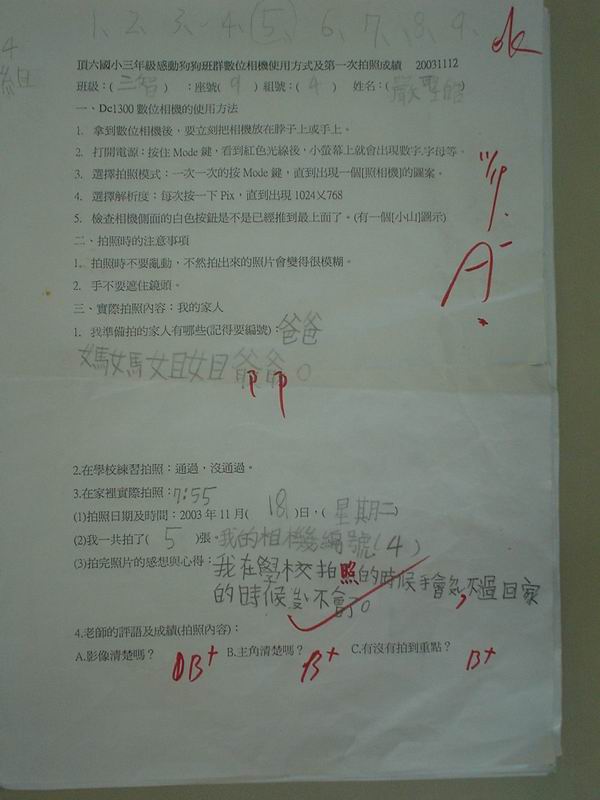 1、2、3、4、5、6、7、8、9、
ok
4
組
頂六國小三年級感動狗狗班群數位相機使用方式及第一次拍照成績 20031112
班級：(三智) ：座號(9) 組號：(4) 姓名：(嚴聖皓)
一、Dc1300 數位相機的使用方法
1. 拿到數位相機後，要立刻把相機放在脖子上或手上。
2. 打開電源：按住 Mode 鍵，看到紅色光線後，小螢幕上就會出現數字.字母等。
3. 選擇拍照模式：一次一次的按 Mode 鍵，直到出現一個[照相機]的圖案。
4. 選擇解析度：每次按一下 Pix，直到出現 1024╳768
5. 檢查相機側面的白色按鈕是不是已經推到最上面了。(有一個[小山]圖示)
11/19.
A-
二、拍照時的注意事項
1. 拍照時不要亂動，不然拍出來的照片會變得很模糊。
2. 手不要遮住鏡頭。
三、實際拍照內容：我的家人
1. 我準備拍的家人有哪些(記得要編號)：爸爸
媽媽姐姐爺爺。
2.在學校練習拍照：通過，沒通過。
3.在家裡實際拍照：7:55
(1)拍照日期及時間：2003 年 11 月( 18 )日，(星期二)
(2)我一共拍了( 5 )張，我的相機編號(4)
(3)拍完照片的感想與心得：我在學校拍照的時候手會 不過回家
的時候 不會了。
4.老師的評語及成績(拍照內容)：
A.影像清楚嗎？ B+ B.主角清楚嗎？ B+ C.有沒有拍到重點？ B+